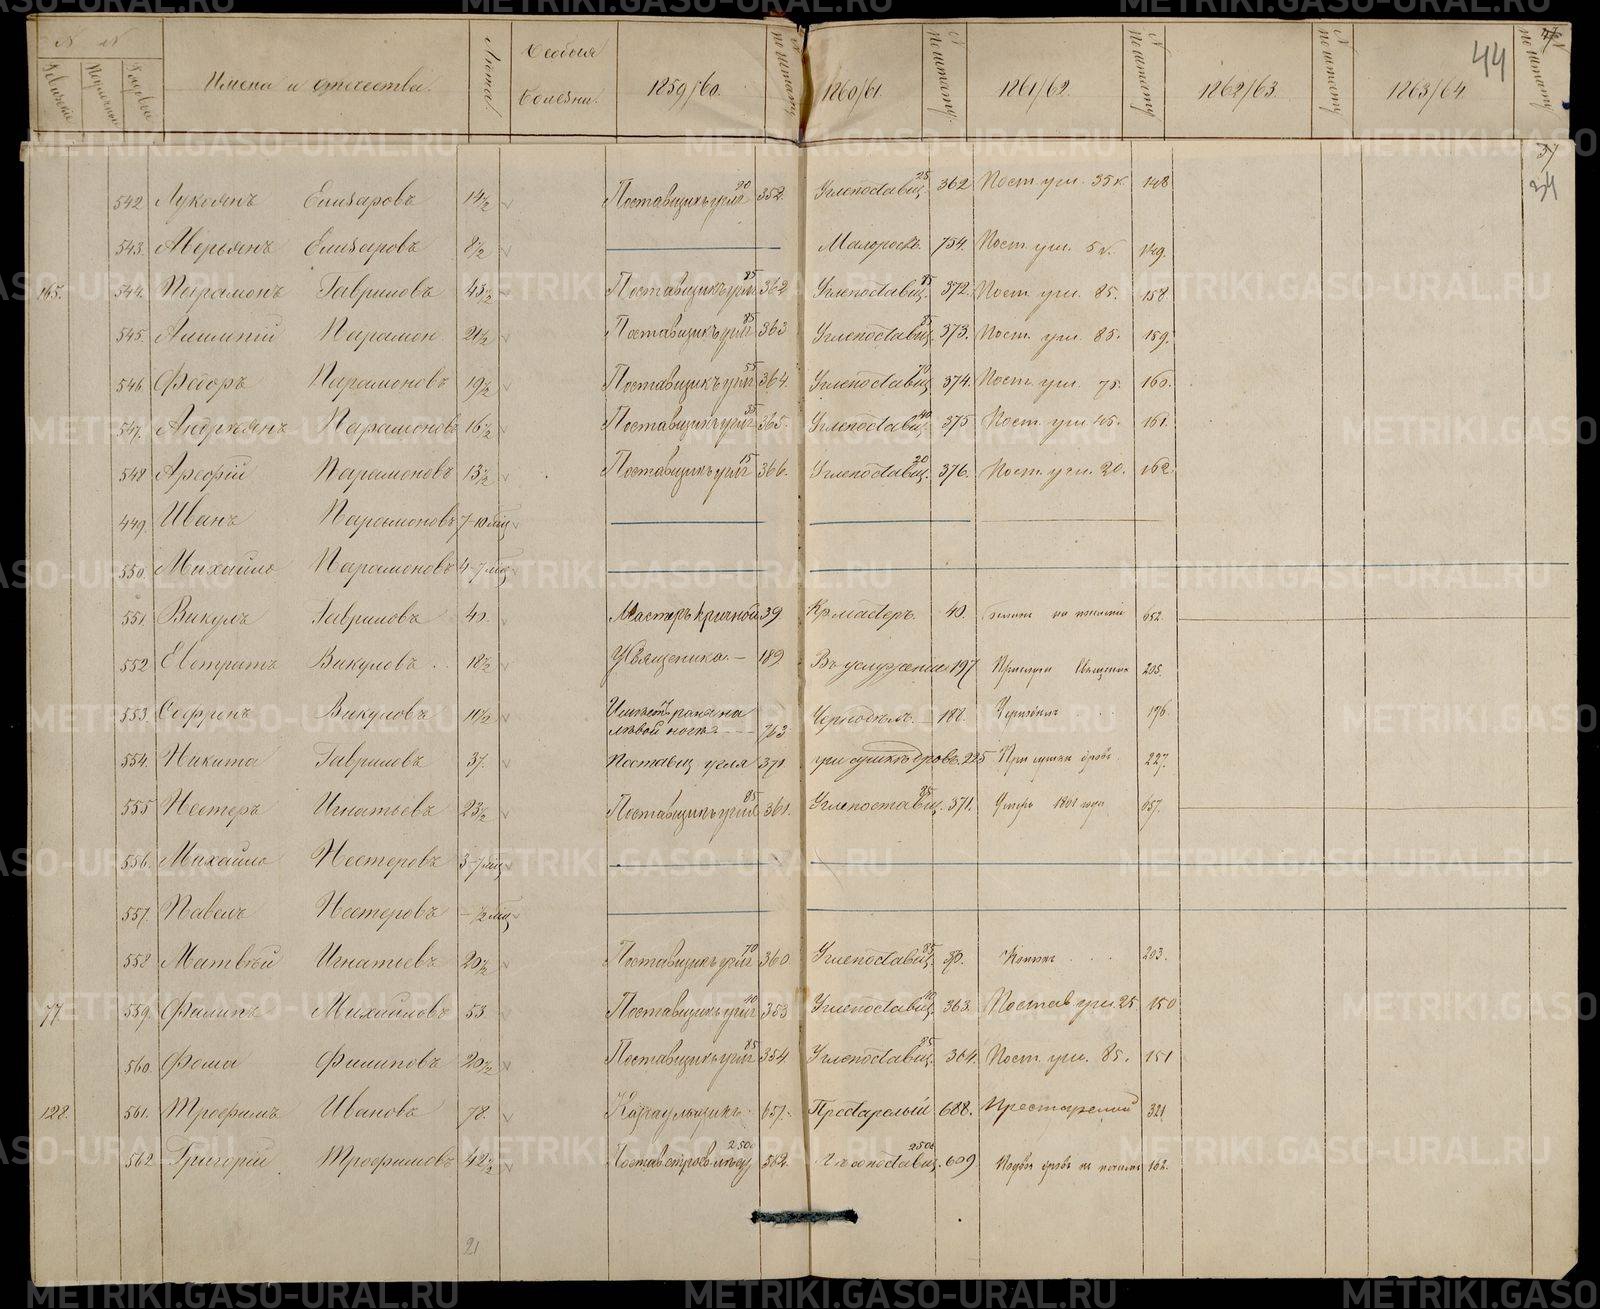 № №
Ревизскіе
Годовы
Имена и отчества.
Лѣта.
Особыя болезни.
1859/60.
№ по штату
1860/61
№ по штату
1861/62.
№ по штату
1862/63.
№ по штату
1863/64.
№ по штату
44
37
34
542 Лукоянъ Елизаровъ 14½ Поставщикъ угля 20 352. Углепоставщ. 25 362 Пост. угл. 35 к 148
543. Аверьянъ Елизаровъ 8½ Малоросл. 754. Пост. угл. 5 к. 149.
165. 544. Парамонъ Гавриловъ 43½ Поставщикъ угля 85 362 Углепоставщ. 85 372. Пост. угл. 85. 158
545. Парамон 21½ Поставщикъ угля 85 363 Углепоставщ. 85 373. Пост. угл. 85. 159.
546 Федоръ Парамоновъ 19½ Поставщикъ угля 55 364. Углепоставщ. 70 374. Пост. угл. 75. 160.
547. Андреянъ Парамоновъ 16½ Поставщикъ угля 35 365. Углепоставщ. 40 375 Пост. угл. 45. 161
548 Арефій Парамоновъ 13½ Поставщикъ угля 15 366. Углепоставщ. 20 376. Пост. угл. 20. 162
449. Иванъ Парамоновъ 7-10 мѣц
550. Михайло Парамоновъ 4-7 мѣц
551. Викулъ Гавриловъ 40. Мастеръ кричной 39 Кр. мастеръ. 40. 652
552 Евстратъ Викуловъ 18½ У священика 189 Въ услуженіи 197 205.
553. Софронъ Викуловъ 11½ Имѣетъ рана на
лѣвой ногѣ 763 Чернодѣл. 188. 176
554. Никита Гавриловъ 37. Поставщ угля 371 при сушкѣ дровъ. 225 При сушкѣ дровъ 227.
555 Нестеръ Игнатьевъ 23½ Поставщикъ угля 85 361. Углепоставщ. 85 371. Умеръ 1861 года 657.
556. Михайло Нестеровъ 3-7 мѣц
557. Павелъ Нестеровъ - ½ мѣц
558 Матвѣй Игнатьевъ 20½ Поставщикъ угля 70 360 Углепоставщ. 85 203.
77 559. Филипъ Михайловъ 53 Поставщикъ угля 10 353 Углепоставщ. 10 363. Постав угл. 25 150
560. Фома Филиповъ 20½ Поставщикъ угля 85 354. Углепоставщ. 85 364. Пост. угл. 85. 151
128. 561. Трофимъ Ивановъ 78. Караульщикъ 657. Престарелый 688. Престарелый 321
562 Григорій Трофимовъ 42½ 2500 562. 2500 609 162.
21